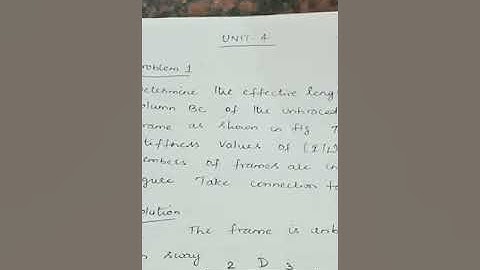 UNIT - 4
roblem 1
etermine the effective leng
olumn BC of the unbraced
rame as shown in fig 7
tiffness values of (I/L)
embers of frames are in
igure Take connection fa
olution
The frame is unb
n sway
2 D 3